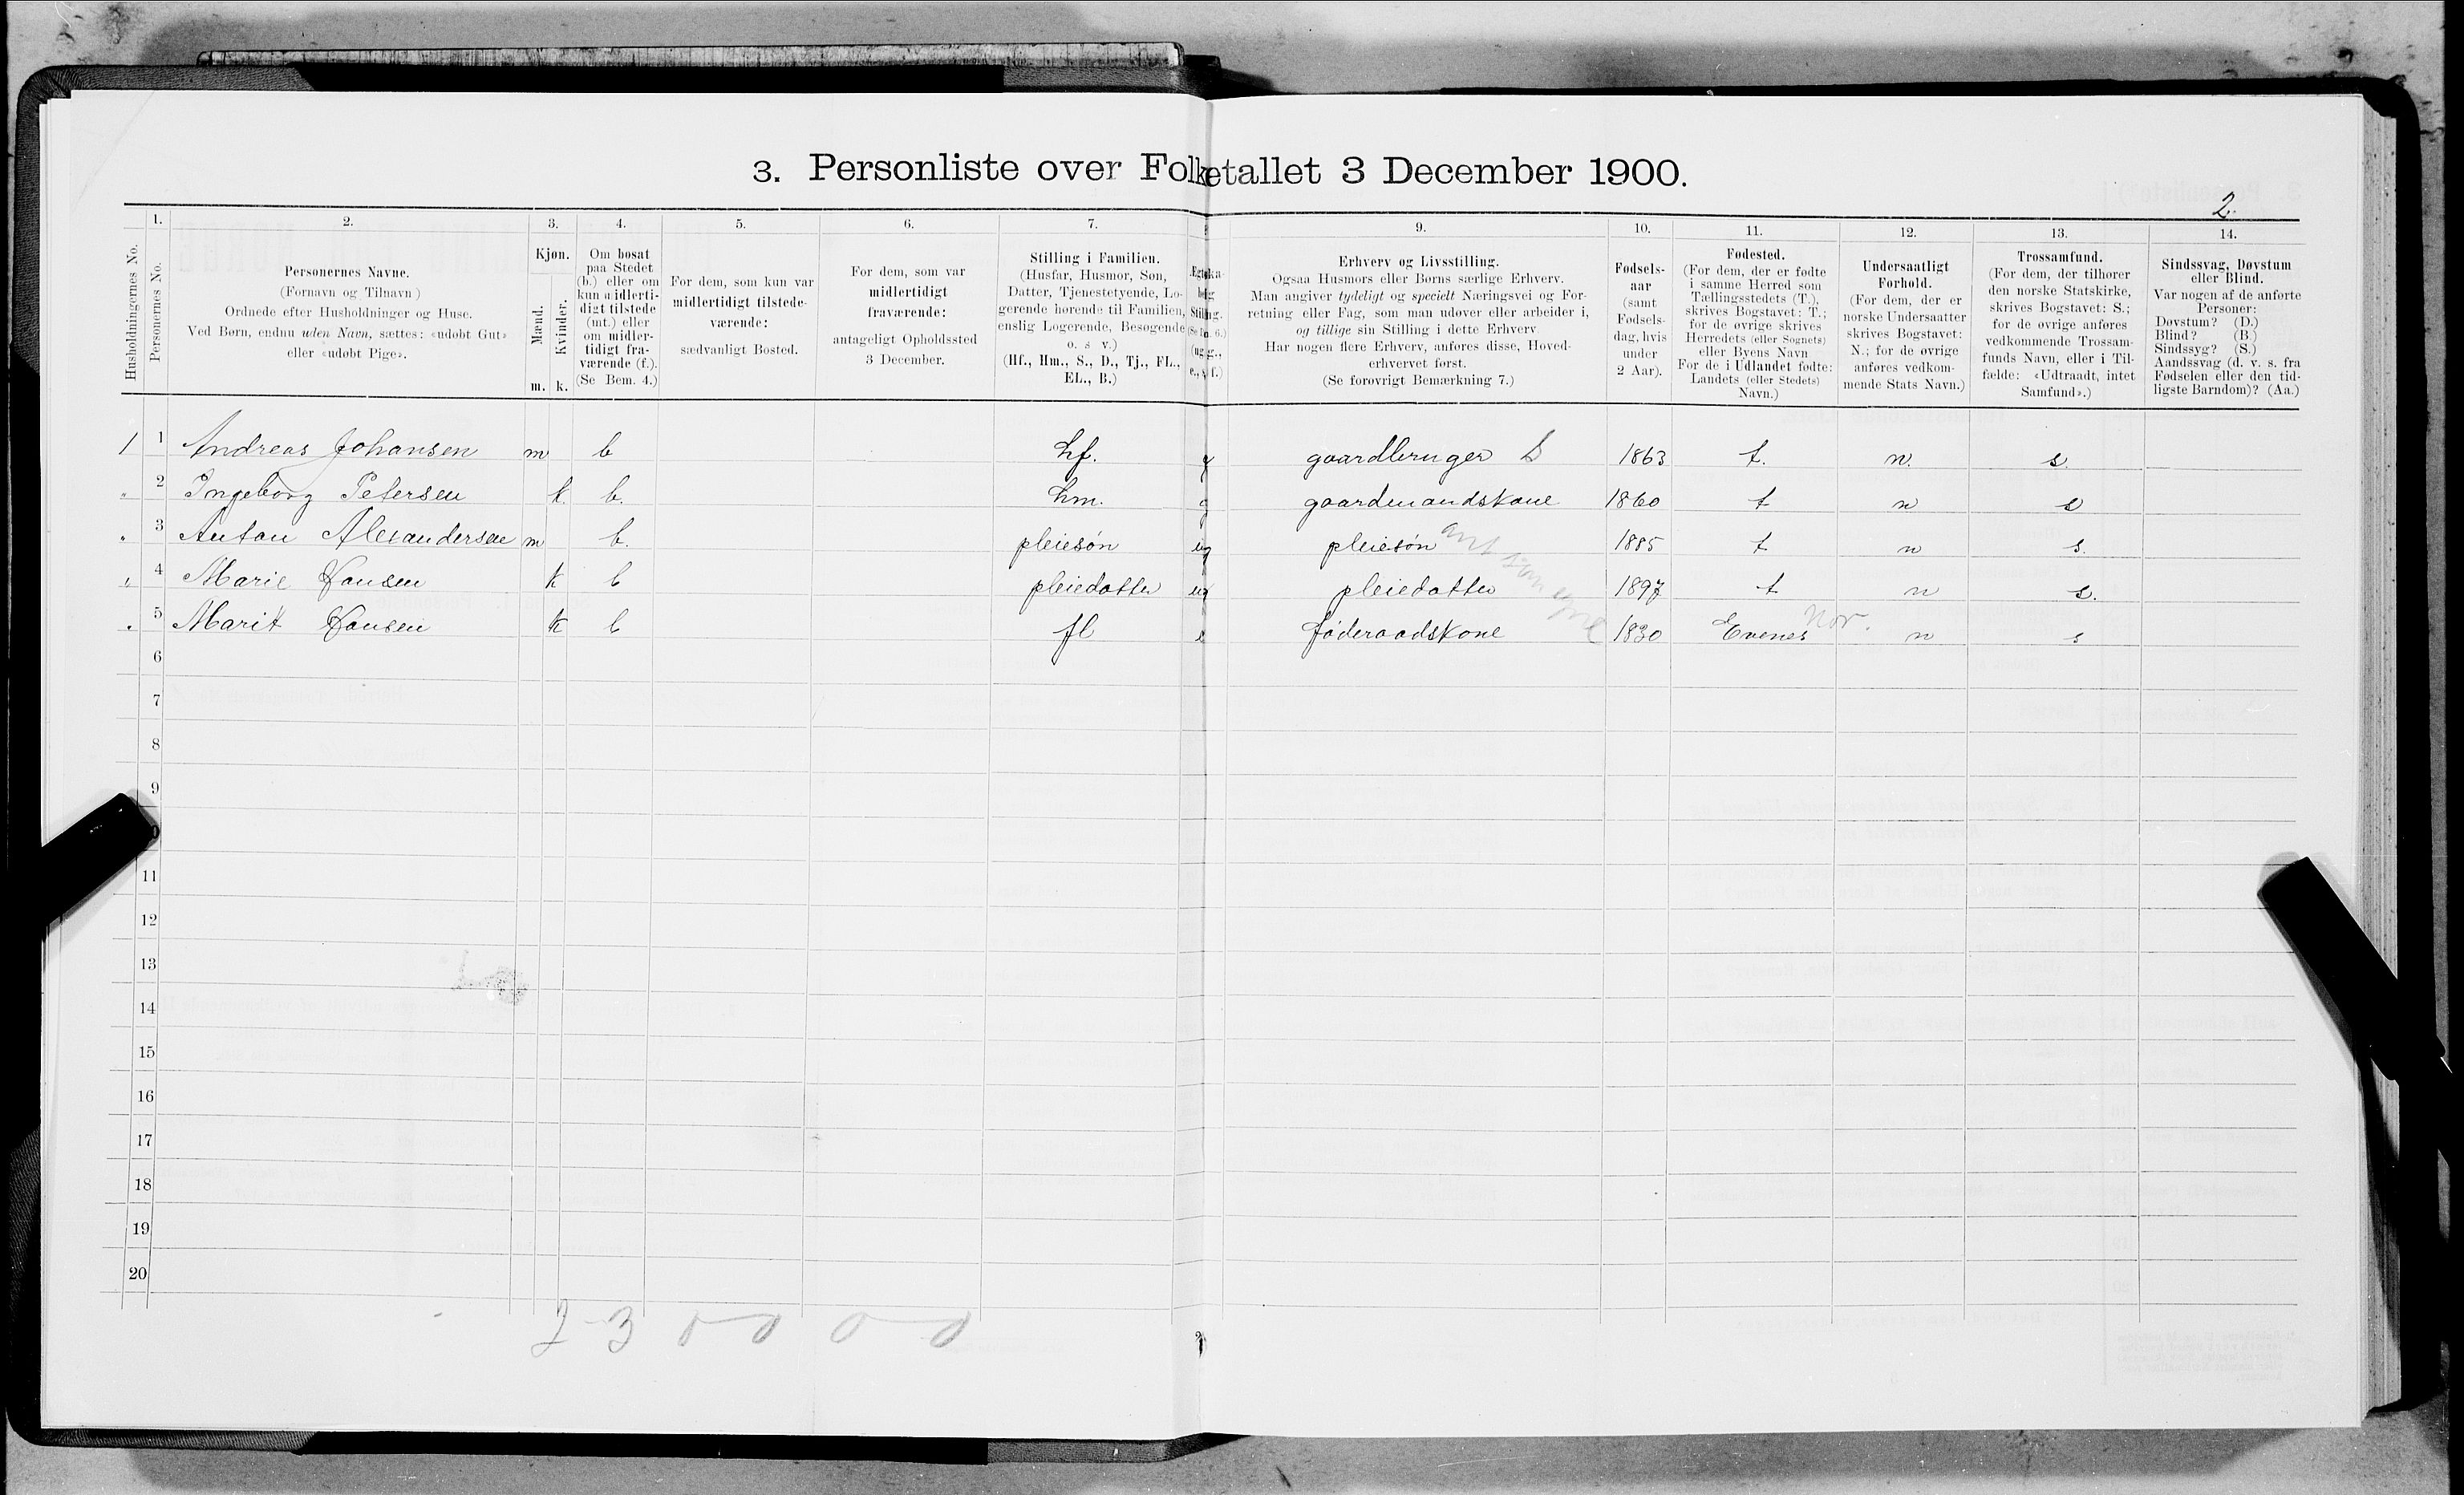 3. Personliste over Folketallet 3 December 1900.
2.
1. 2. 3. 4. 5. 6. 7. 9. 10. 11. 12. 13. 14.
Husholdningernes No.
Personernes No.
Personernes Navne.
(Fornavn og Tilnavn)
Ordnede efter Husholdninger og Huse.
Ved Børn, endnu uden Navn, sættes: «udøbt Gut»
eller «udøbt Pige».
Kjøn.
Mænd.
Kvinder.
m. k.
Om bosat
paa Stedet
(b.) eller om
kun midlerti-
digt tilstede
(mt.) eller
om midler-
tidigt fra-
værende (f.).
(Se Bem. 4.)
For dem, som kun var
midlertidigt tilstede-
værende:
sædvanligt Bosted.
For dem, som var
midlertidigt
fraværende:
antageligt Opholdssted
3 December.
Stilling i Familien.
(Husfar, Husmor, Søn,
Datter, Tjenestetyende, Lo-
gerende hørende til Familien,
enslig Logerende, Besøgende
o. s v.)
(Hf., Hm., S., D., Tj., FL.,
EL., B.)
Erhverv og Livsstilling.
Ogsaa Husmors eller Børns særlige Erhverv.
Man angiver tydeligt og specielt Næringsvei og For-
retning eller Fag, som man udøver eller arbeider i,
og tillige sin Stilling i dette Erhverv.
Har nogen flere Erhverv, anføres disse, Hoved-
erhvervet først.
(Se forøvrigt Bemærkning 7.)
Fødsels-
aar
(samt
Fødsels-
dag, hvis
under
2 Aar).
Fødested.
(For dem, der er fødte
i samme Herred som
Tællingsstedets (T.),
skrives Bogstavet: T.;
for de øvrige skrives
Herredets (eller Sognets)
eller Byens Navn
For de i Udlandet fødte:
Landets (eller Stedets)
Navn.)
Undersaatligt
Forhold.
(For dem, der er
norske Undersaatter
skrives Bogstavet:
N.; for de øvrige
anføres vedkom-
mende Stats Navn.)
Trossamfund.
(For dem, der tilhører
den norske Statskirke,
skrives Bogstavet: S.;
for de øvrige anføres
vedkommende Trossam-
funds Navn, eller i Til-
fælde: «Udtraadt, intet
Samfund».)
Sindssvag, Døvstum
eller Blind.
Var nogen af de anførte
Personer:
Døvstum? (D.)
Blind? (B.)
Sindssyg? (S.)
Aandssvag (d. v. s. fra
Fødselen eller den tid-
ligste Barndom)? (Aa.)
1 1 Andreas Johansen m b hf. g gaardbruger S 1863 t. n. s.
" 2 Ingeborg Petersen k. b. hm. g gaardmandskone 1860 t n s
" 3 Anton Alexandersen m b. pleiesøn ug pleiesøn 1885 t n s.
" 4 Marie Hansen k b pleiedatter ug pleiedatter 1897 t n s.
" 5 Marit Hansen k b fl e føderaadskone 1830 Evenes Nor. n s
6
7
8
9
11
12
13
14
15
16
17
18
19
20
2-3 0-0 0-0